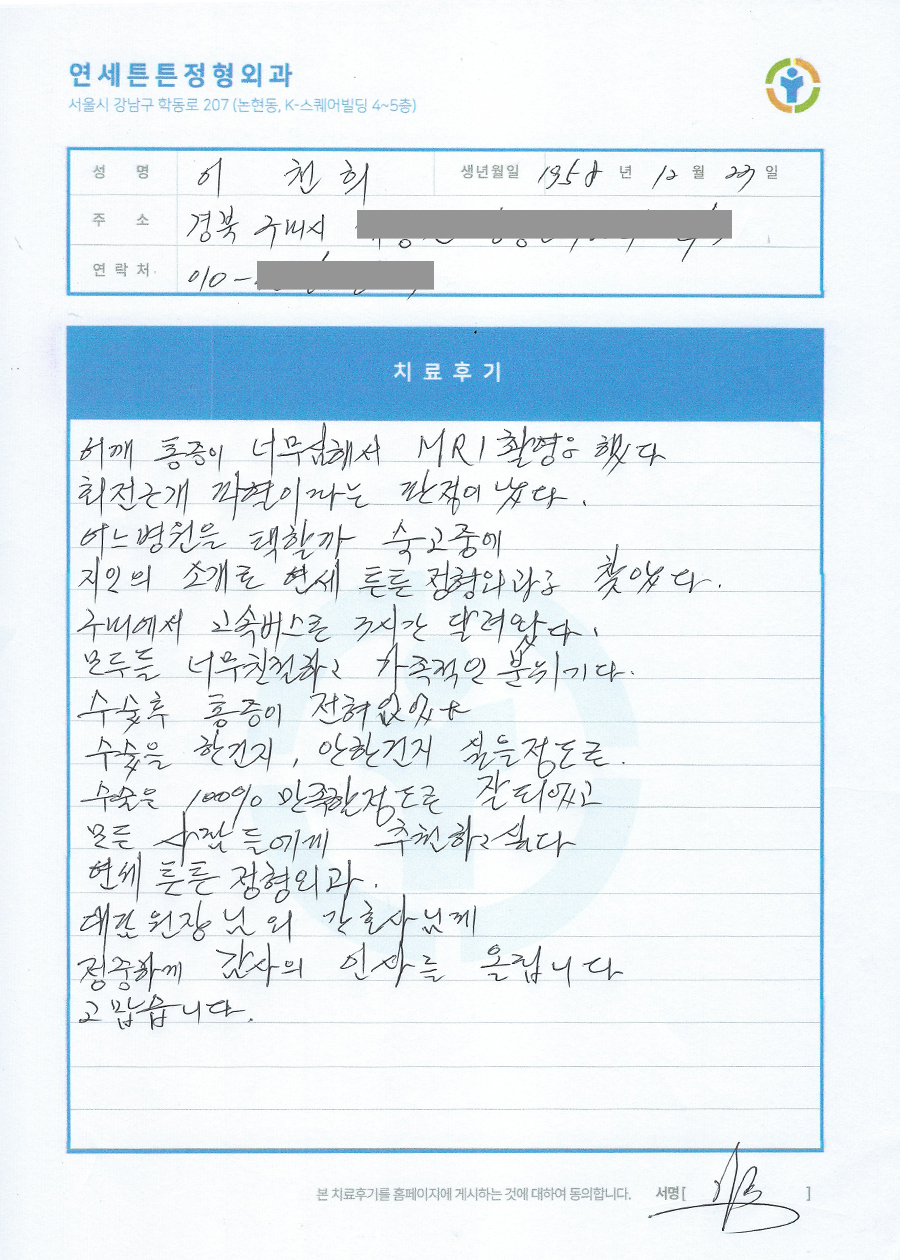 연세튼튼정형외과
서울시 강남구 학동로 207 (논현동, K-스퀘어빌딩 4~5층)
성 명 이 천 희 생년월일 1958 년 12 월 23 일
주 소 경북 구미시
연 락 처 010-
치료후기
어깨 통증이 너무심해서 MRI 촬영을 했다
회전근개 파열이라는 판정이 났다.
어느병원을 택할까 숙고중에
지인의 소개로 연세 튼튼 정형외과를 찾았다.
구미에서 고속버스로 3시간 달려왔다.
모두들 너무친절하고 가족적인 분위기다.
수술후 통증이 전혀없었다
수술을 한건지, 안한건지 싶을정도로.
수술은 100% 만족할정도로 잘되었고
모든 사람들에게 추천하고싶다
연세 튼튼 정형외과.
대표원장님외 간호사님께
정중하게 감사의 인사를 올립니다
고맙습니다.
본 치료후기를 홈페이지에 게시하는 것에 대하여 동의합니다. 서명 [ ]